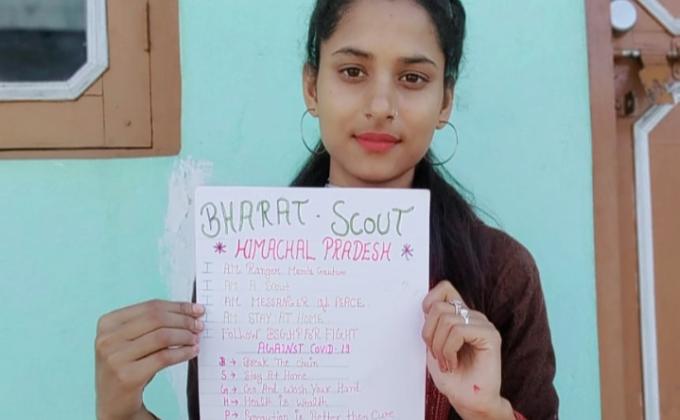 BHARAT. SCOUT
* HIMACHAL PRADESH *
I AM Ranger
I AM A Scout
I AM MESSANGER of PEACE
I AM STAY AT HOME
I Follow BSGHP FOR FIGHT
AGAINST COVID-19
B → Break The chain
S → Stay At Home
G → And Wash Your Hand
H → Health is Wealth
P → Better then Cure